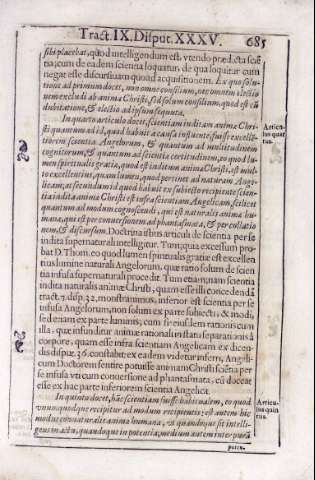 Tract. IX. Disput. XXXV. 685
sibi placebat, quod intelligendum est, vtendo prædicta sciẽ
tia; cum de eadem scientia loquatur, de qua loquitur cum
negat esse discursiuam quoad acquisitionem. Ex quo solu-
tione ad primum docet, non omne consilium, nec omnem electio
nem excludi ab anima Christi, sed solum consilium, quod est cũ
dubitatione, & electio ad ipsum sequuta.
In quarto articulo docet, scientiam inditam animæ Chri-
sti quantum ad id, quod habuit a causa influente, fuisse excellẽ-
tiorem scientia Angelorum, & quantum ad multitudinem
cognitorum, & quantum ad scientia certitudinem, eo quod lu-
men spirituale gratiæ, quod est inditum animæ Christi, est mul-
to excellentius, quam lumen, quod pertinet ad naturam Ange-
licam; at secundum id quod habuit ex subiecto recipiente scien-
tia indita animæ Christi est infra scientiam Angelicam, scilicet
quantum ad modum cognoscendi, qui est naturalis animæ hu-
manæ, qui est per conuersionem ad phantasmata, & per collatio
nem, & discursum. Doctrina istius articuli de scientia per se
indita supernaturali intelligitur. Tum; quia excessum pro-
bat D. Thom. eo quod lumen spiritualis gratiæ est excellen
tius lumine naturali Angelorum, quæ ratio solum de scien
tia infusa supernaturali procedit. Tum etiam; nam scientia
indita naturalis animæ Christi, quam esse illi concedendã
tract. 7. disp. 32. monstrauimus, inferior est scientia per se
infusa Angelorum, non solum ex parte subiecti, & modi,
sed etiam ex parte luminis, cum sit eiusdem rationis cum
illa, quæ infunditur animæ rationali in statu separationis à
corpore, quam esse infra scientiam Angelicam ex dicen-
dis disput. 36. constabit; ex eadem videtur inferri, Angeli-
cum Doctorem sentire potuisse animam Christi sciẽtia per
se infusa vti cum conuersione ad phantasmata, cũ doceat
esse ex hac parte inferiorem scientia Angelica.
In quinto docet, hãc scientiam fuisse habitualem, eo quod
vnumquodque recipitur ad modum recipientis: est autem hic
modus connaturalis animæ humanæ, vt quandoque sit intelli-
gens in actu, quandoque in potentia; medium autem inter purã
poten-
Articu-
lus quar
tus.
Articu-
lus quin
tus.